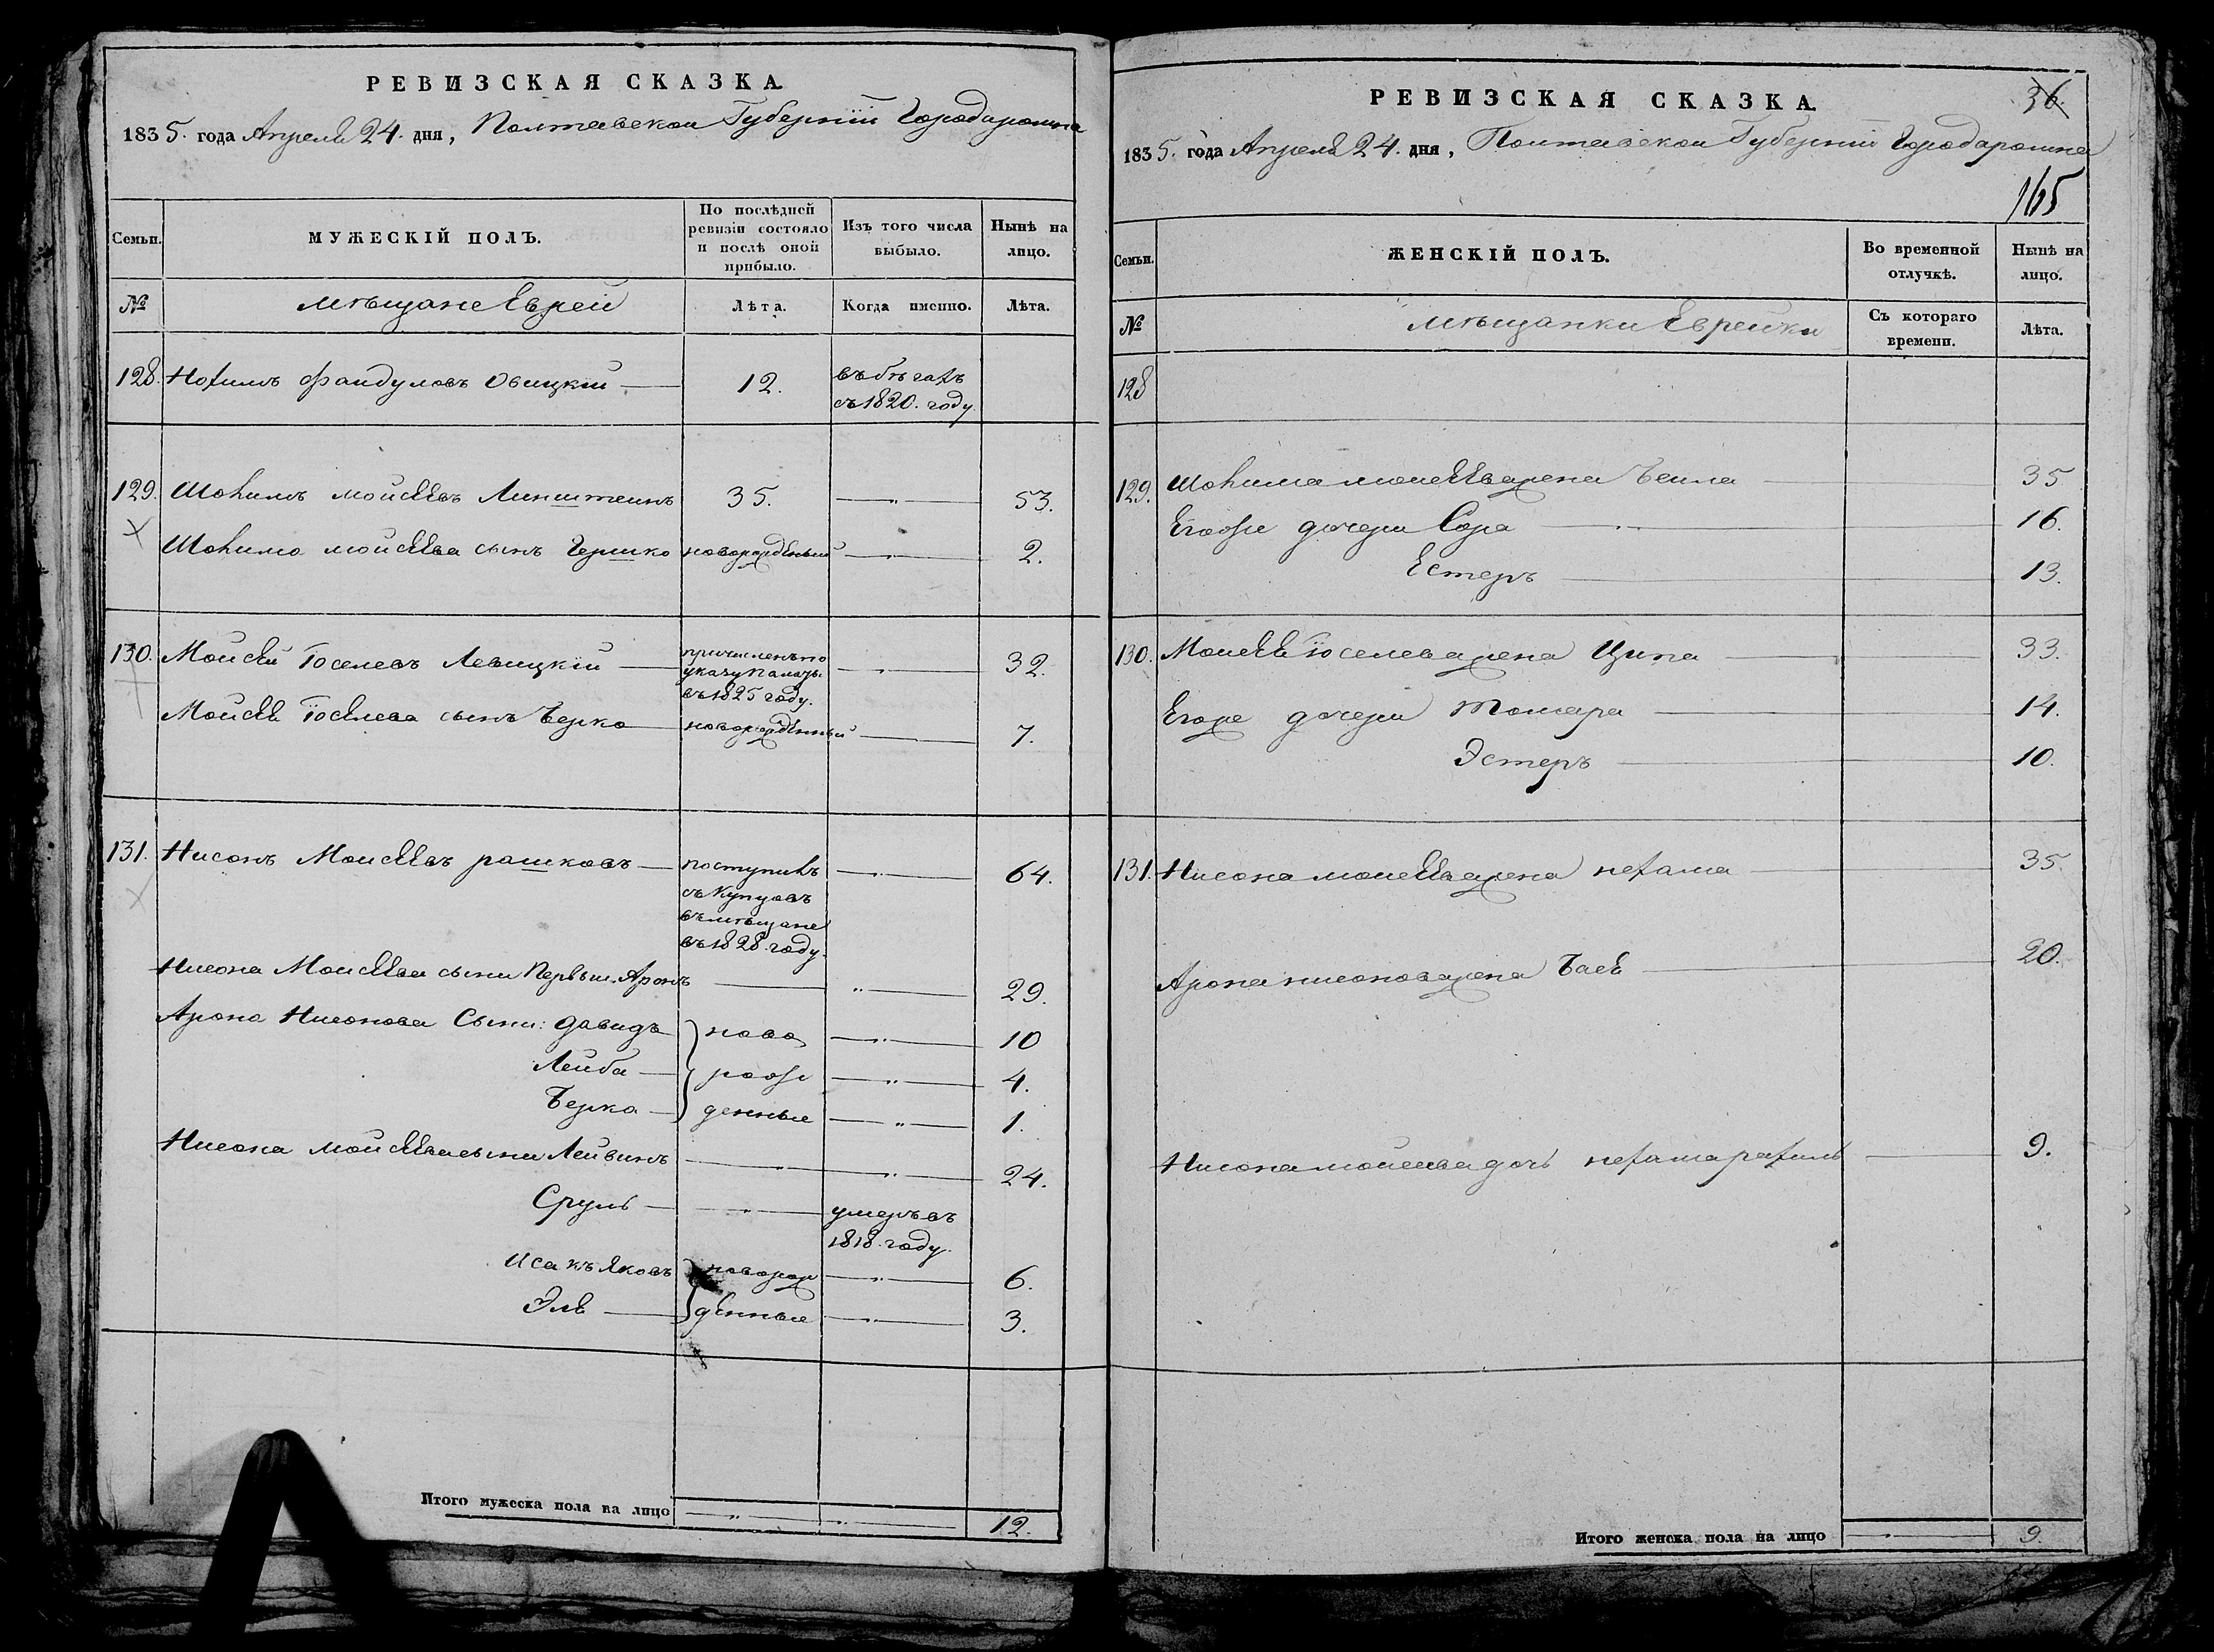 РЕВИЗСКАЯ СКАЗКА.
1835. года Апреля 24. дня, Полтавской Губерніи Города ромна
Семьи.
МУЖЕСКІЙ ПОЛЪ.
По послѣдней ревизіи состояло и послѣ оной прибыло.
Изъ того числа выбыло.
Нынѣ на лицо.
№
мѣщане Евреи
Лѣта.
Когда именно.
Лѣта.
128. Нохимъ Файдуловъ Овицкій 12. въ бѣгахъ
съ 1820. году.
129. Шолимъ мойсѣевъ Линштеинъ 35. 53.
Шолима мойсѣева сынъ Гершко новорожденный 2.
130. Мойсѣй Іоселевъ Левицкій причисленъ по
указу палаты
въ 1825 году. 32.
Мойсѣя Іоселева сынъ Берко новорожденный 7.
131. Нисонъ Моисѣевъ рашковъ поступилъ
съ Купцовъ
въ мѣщане
въ 1828. году. 64.
Нисона Моисѣева сыны Первый Аронъ 29.
Арона Нисонова Сыны: Давидъ ново 10
Лейба рож 4.
Берко денные 1.
Нисона мойсѣева сыны Лейвикъ 24.
Сруль умеръ въ
1818. году.
Исакъ Яковъ новорож 6.
Эль денные 3.
Итого мужеска пола на лицо 12.
РЕВИЗСКАЯ СКАЗКА.
36.
1835. года Апреля 24. дня, Полтавской Губерніи Города ромна
165
Семьи.
ЖЕНСКІЙ ПОЛЪ.
Во временной отлучкѣ.
Нынѣ на лицо.
№
мѣщанки Еврейки
Съ котораго времени.
Лѣта.
128
129. Шолима моисѣева жена Бейла 35
Егоже дочери Сора 16.
Естеръ 13.
130. Моисѣя Іоселева жена Ципа 33.
Егоже дочери Томара 14.
Эстеръ 10.
131. Нисона моисѣева жена нехама 35.
Арона нисонова жена Бася 20.
Нисона мойсеева дочь нехама рахиль 9.
Итого женска пола на лицо 9.